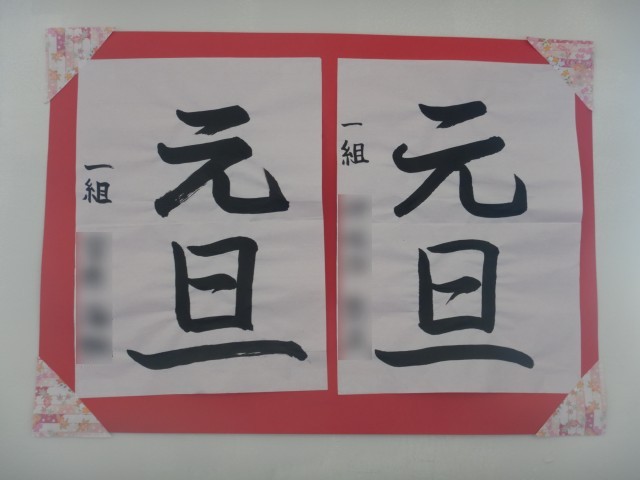 元旦
一組
元旦
一組